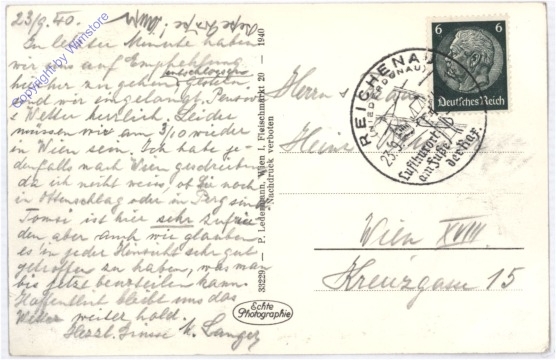 23/9.40.
In letzter Minute haben
wir uns auf Empfehlung
hierher zu gehen entschlossen
und wir eingelangt.
Wetter herrlich. Leider
müssen wir am 3/10 wieder
in Wien sein. Ich habe je-
denfalls nach Wien geschrieben
da ich nicht weiss, ob Sie noch
in Ottenschlag oder in Perg sind.
Tomsi ist hier sehr zufrie-
den aber auch wir glauben
es in jeder Hinsicht sehr gut
getroffen zu haben, was man
bis jetzt beurteilen kann.
Hoffentlich bleibt uns das
Wetter weiter hold.
Herzl. Grüsse
Copyright by Wamstore
33229 – P. Ledermann, Wien I, Fleischmarkt 20 – 1940
Nachdruck verboten
Echte
Photographie
REICHENAU
(NIEDERDONAU)
23.9.
Luftkurort
am Fuße
der Rax
6 6
Deutsches Reich
Herrn
Wien XVIII
Kreuzgasse 15